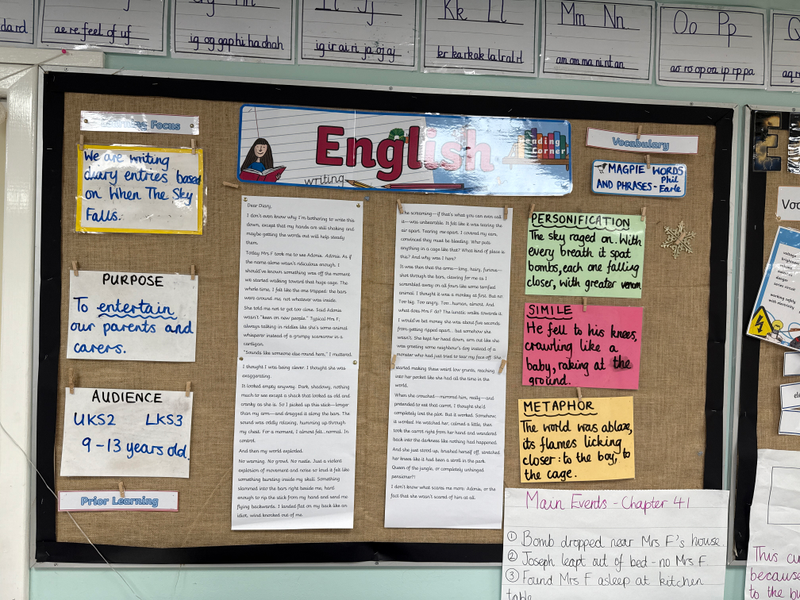 ae re feel of uf
ig og gap hi ha oh ah
Ii Jj
Kk Ll
Mm Nn
Oo Pp
Focus
We are writing
diary entries based
on When The Sky
Falls.
PURPOSE
To entertain
our parents and
carers.
AUDIENCE
UKS2 LKS3
9-13 years old.
Prior Learning
English
writing
Reading
Corner
Dear Diary,
I don't even know why I'm bothering to write this
down, except that my hands are still shaking and
maybe getting the words out will help steady
them.
Today Mrs F took me to see Adonis. Adonis. As if
the name alone wasn't ridiculous enough, I
should've known something was off the moment
we started walking toward that huge cage. The
whole time, I felt like she one trapped: the bars
were around me, not whatever was inside.
She told me not to get too close. Said Adonis
wasn't "keen on new people." Typical Mrs F,
always talking in riddles like she's some animal
whisperer instead of a grumpy scarecrow in a
cardigan.
"Sounds like someone else round here," I muttered.
I thought I was being clever. I thought she was
exaggerating.
It looked empty anyway. Dark, shadowy, nothing
much to see except a shack that looked as old and
cranky as she is. So I picked up this stick—longer
than my arm—and dragged it along the bars. The
sound was oddly relaxing, humming up through
my chest. For a moment, I almost felt... normal. In
control.
And then my world exploded.
No warning. No growl. No snarl. Just a violent
explosion of movement and noise so loud it felt like
something bursting inside my skull. Something
slammed into the bars right beside me, hard
enough to rip the stick from my hand and send me
flying backwards. I landed flat on my back like an
idiot, wind knocked out of me.
The screaming—if that's what you can even call
it—was unbearable. It felt like it was tearing the
air apart. Tearing me apart. I covered my ears,
convinced they must be bleeding. Who puts
anything in a cage like that? What kind of place is
this? And why was I here?
It was then that the arm—long, hairy, furious—
shot through the bars, clawing for me as I
scrambled away on all fours like some terrified
animal. I thought it was a monkey at first. But no.
Too big. Too angry. Too... human, almost. And
what does Mrs F do? The lunatic walks towards it.
I would've bet money she was about five seconds
from getting ripped apart... but somehow she
wasn't. She kept her head down, arm out like she
was greeting some neighbour's dog instead of a
monster who had just tried to tear my face off. She
started making these weird low grunts, reaching
into her pocket like she had all the time in the
world.
When she crouched—rammed him, really—and
pretended to eat that carrot, I thought she'd
completely lost the plot. But it worked. Somehow,
it worked. He watched her, calmed a little, then
took the carrot right from her hand and wandered
back into the darkness like nothing had happened.
And she just stood up, brushed herself off, stretched
her knees like it had been a stroll in the park.
Queen of the jungle, or completely unhinged
pensioner?!
I don't know what scares me more: Adonis, or the
fact that she wasn't scared of him at all.
Vocabulary
"MAGPIE" WORDS
AND PHRASES - Phil
Earle
PERSONIFICATION
The sky raged on. With
every breath it spat
bombs, each one falling
closer, with greater venom.
SIMILE
He fell to his knees,
crawling like a
baby, raking at the
ground.
METAPHOR
The world was ablaze,
its flames licking
closer: to the boy, to
the cage.
Main Events - Chapter 41
① Bomb dropped near Mrs F's house
② Joseph leapt out of bed - no Mrs F.
③ Found Mrs F asleep at kitchen
table
This cu
because
to the bu